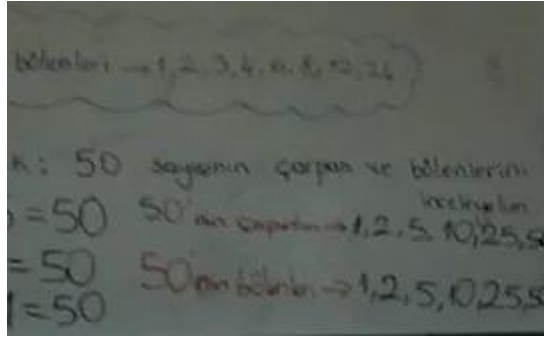 bölenleri → 1, 2, 3, 4, 6, 8, 12, 24
k: 50 sayısının çarpan ve bölenlerini
inceleyelim
= 50 50'nin çarpanları → 1, 2, 5, 10, 25, 5
= 50 50'nin bölenleri → 1, 2, 5, 10, 25, 5
1 = 50